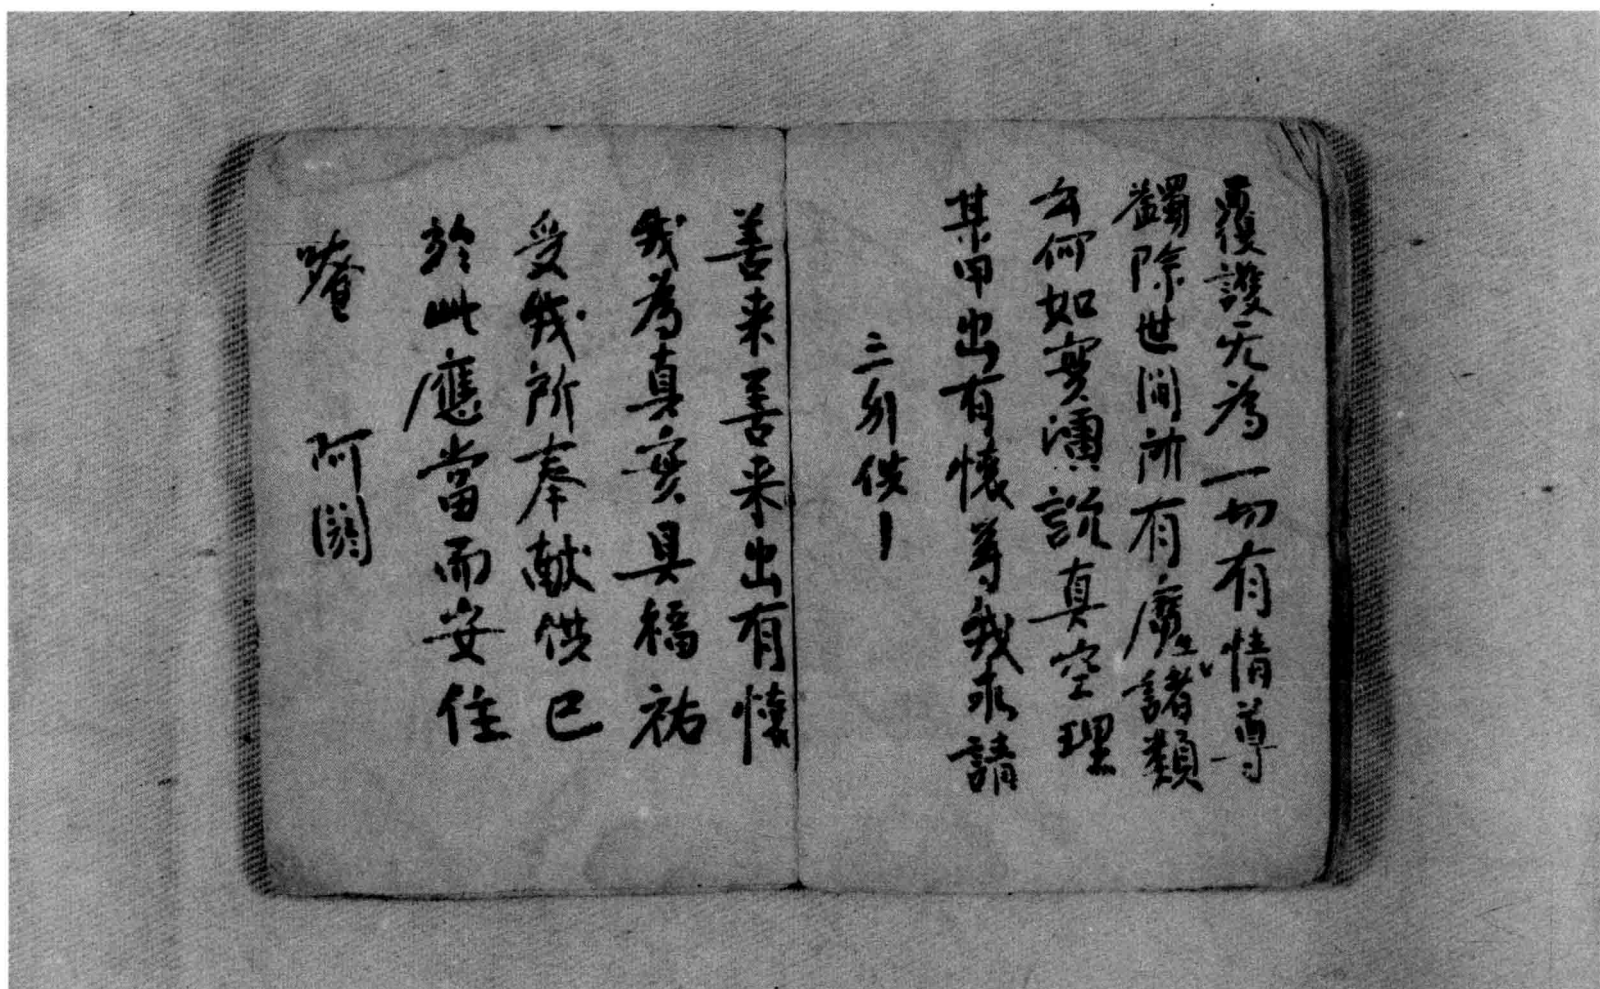 覆護无為一切有情尊
蠲除世間所有魔諸類
云何如實演說真空理
某甲出有懷尊我求請
三列供
善来善来出有懷
我為真實具福祐
受我所奉献供已
於此應當而安住
唵 阿閦